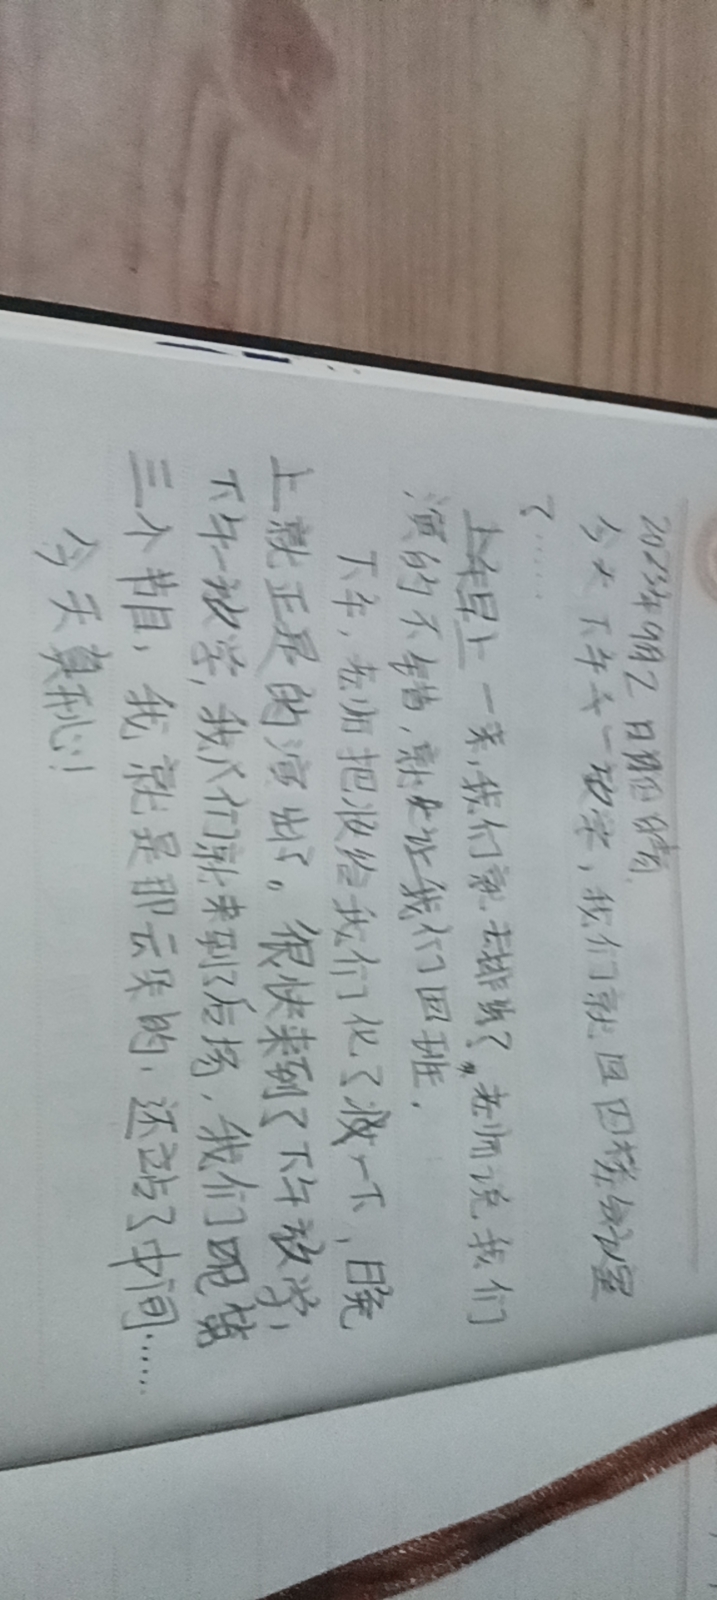 2023年9月2日 晴
今天下午一放学，我们就回
了……
上午早上一来，我们就去排练了，老师说我们
演的不错，就让我们回班．
下午，老师把妆给我们化了妆一下，日晚
上就正是的演出了。很快来到了下午放学，
下午一放学，我们就来到了后场，我们是第
三个节目，我就是那云朵的，还站了中间……
今天真开心！